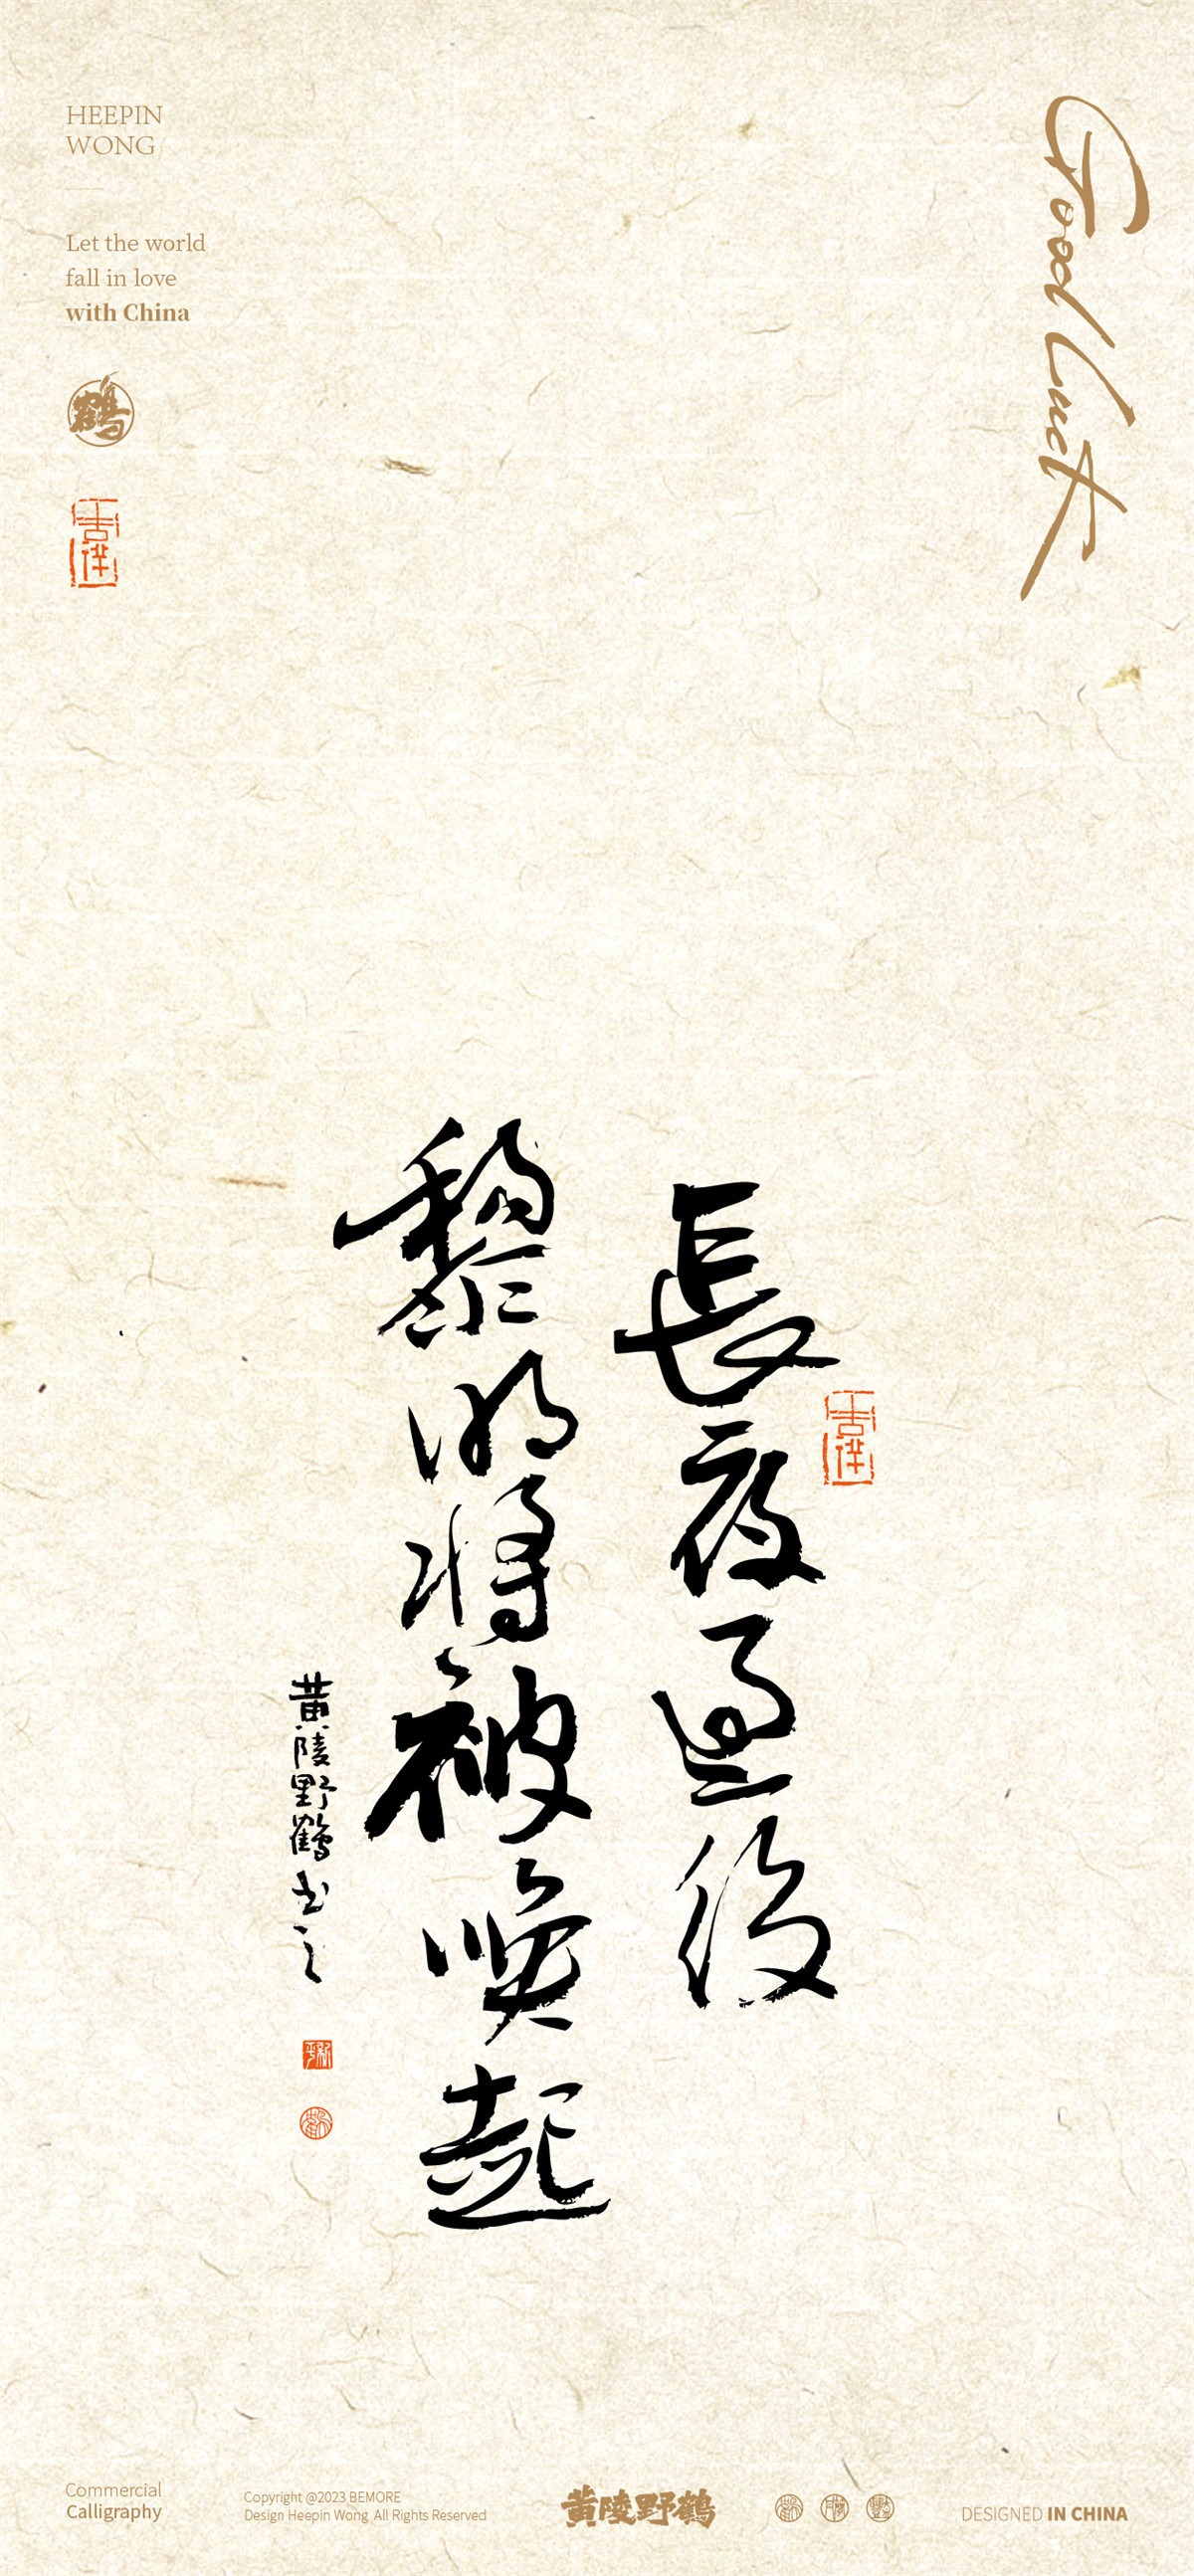 HEEPIN
WONG
Let the world
fall in love
with China
鶴
吉祥
Good Luck
長夜過後
黎明將被喚起
吉祥
黄陵野鶴书之
Commercial
Calligraphy
Copyright @2023 BEMORE
Design Heepin Wong All Rights Reserved
黄陵野鶴
DESIGNED IN CHINA